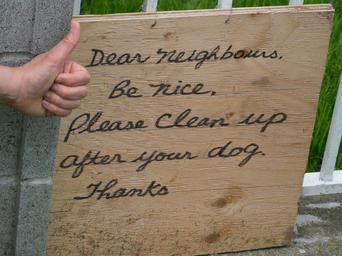 Dear Neighbours.
Be nice.
Please Clean up
after your dog.
Thanks